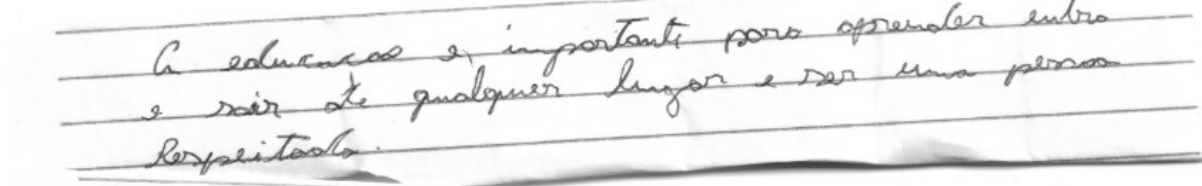 A educacao e importante para aprender entra
e sair de qualquer lugar e ser uma pessoa
Respeitada.